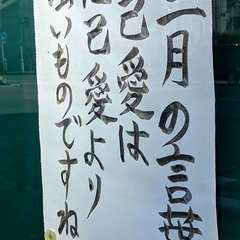 月の言葉
己愛は
己愛より
いものですね